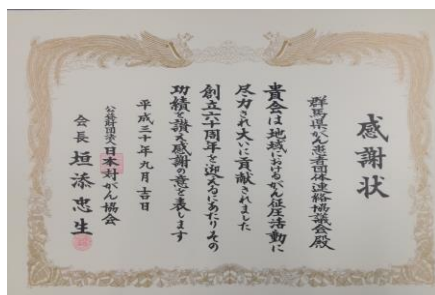 感謝状
群馬県がん患者団体連絡協議会殿
貴会は地域におけるがん征圧活動に
尽力され大いに貢献されました
創立六十周年を迎えるにあたりその
功績を讃え感謝の意を表します
平成三十年九月吉日
公益財団法人日本対がん協会
会長 垣添忠生